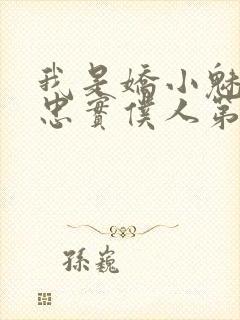 我是嬌小魅
忠實僕人第
孫巍